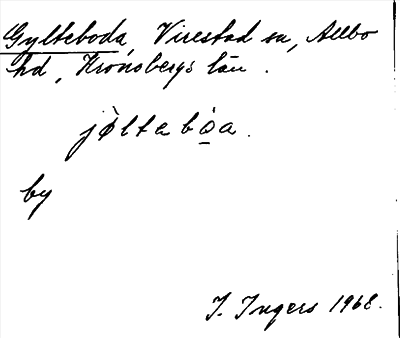 Gylteboda, Virestad sn, Allbo
hd, Kronobergs län.
jòltebòa.
by
I. Ingers 1968.